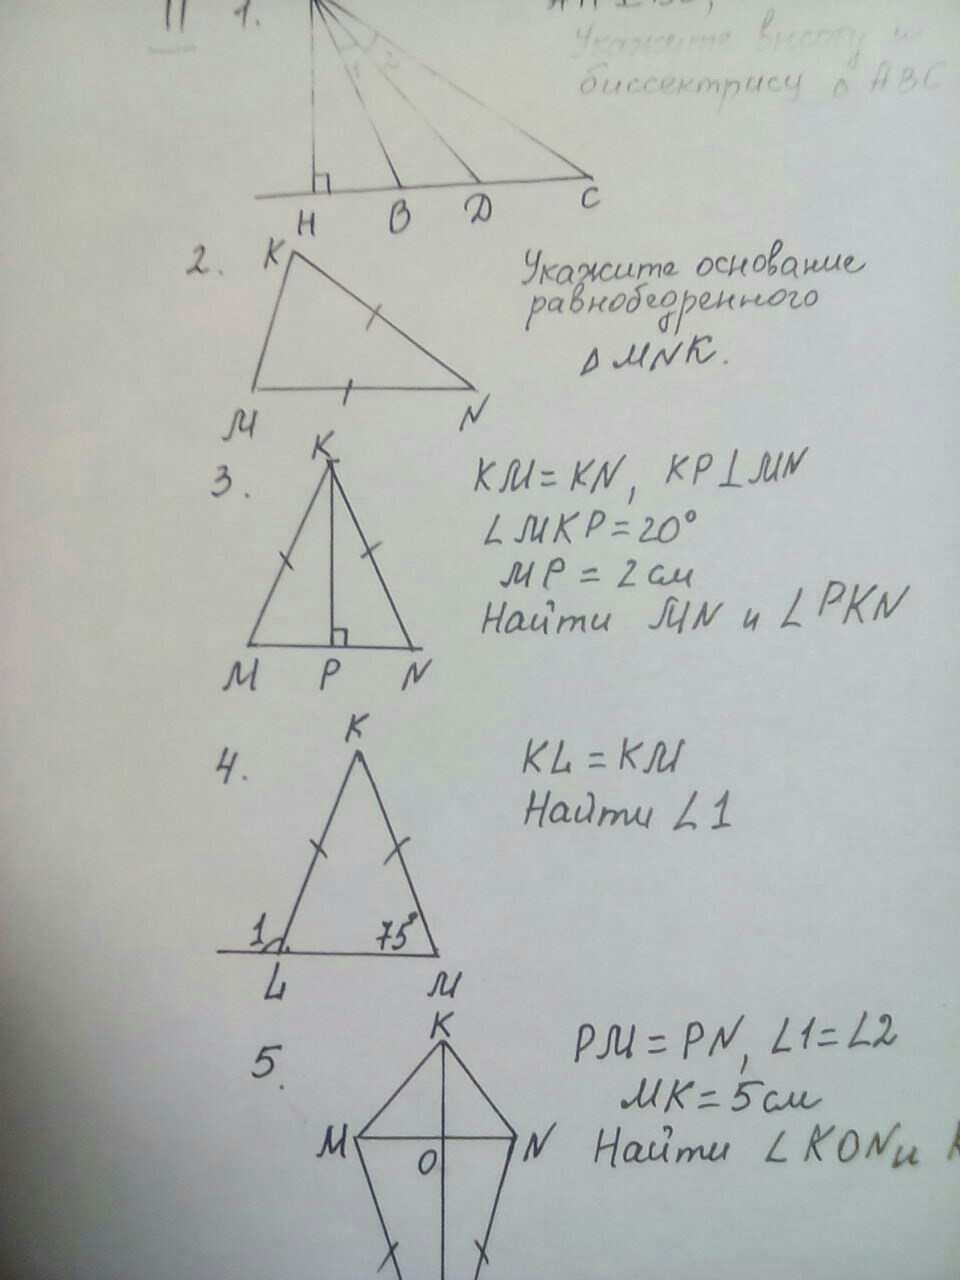 II 1.
Укажите высоту и
биссектрису Δ ABC
H B D C
2. K
Укажите основание
равнобедренного
Δ MNK.
M N
K
3. KM = KN, KP⊥MN
∠MKP = 20°
MP = 2 см
Найти MN и ∠PKN
M P N
K
4. KL = KM
Найти ∠1
1 75°
L M
K
5. PM = PN, ∠1 = ∠2
MK = 5 см
M O N Найти ∠KON и